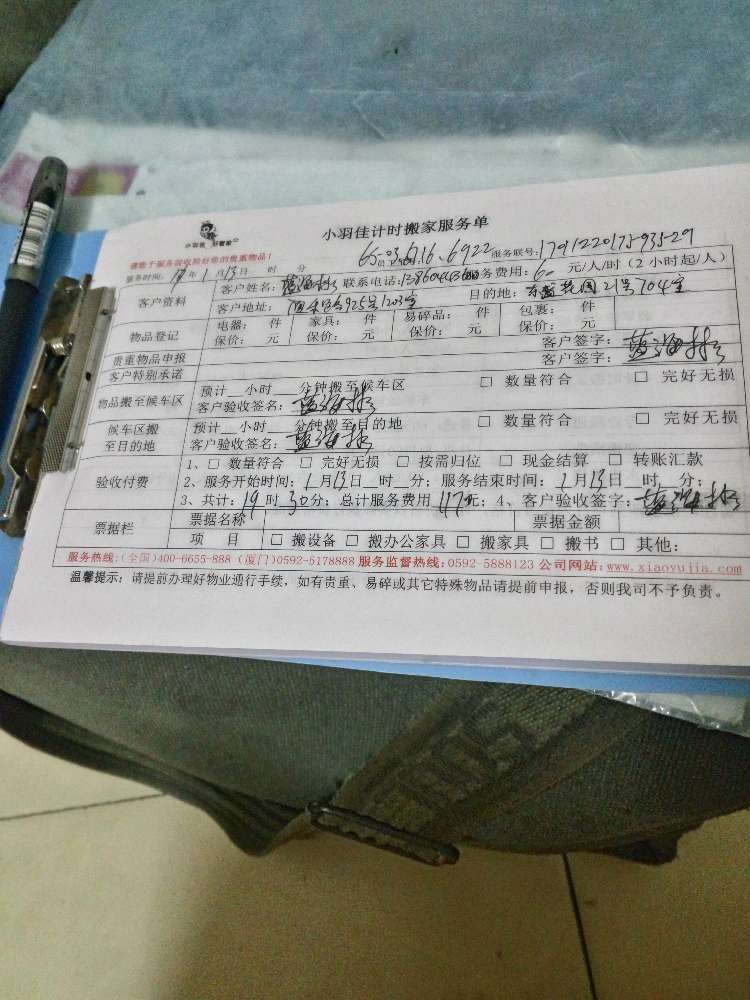 小羽佳计时搬家服务单
请勤于服务验收好您的贵重物品!
服务联号:
服务时间: 17年1月13日 时 分
服务费用: 60 元/人/时(2小时起/人)
客户资料 客户姓名: 联系电话:
客户地址: 925号1203室 目的地: 花园21号704室
物品登记 电器: 件 家具: 件 易碎品: 件 包裹: 件
保价: 元 保价: 元 保价: 元 保价: 元
贵重物品申报 客户签字:
客户特别承诺 客户签字:
物品搬至候车区 预计__小时__分钟搬至候车区 □ 数量符合 □ 完好无损
客户验收签名:
候车区搬至目的地 预计__小时__分钟搬至目的地 □ 数量符合 □ 完好无损
客户验收签名:
验收付费 1、□ 数量符合 □ 完好无损 □ 按需归位 □ 现金结算 □ 转账汇款
2、服务开始时间: 1月13日__时__分; 服务结束时间: 1月13日__时__分;
3、共计: 19时30分; 总计服务费用 117元; 4、客户验收签字:
票据栏 票据名称 票据金额
项 目 □ 搬设备 □ 搬办公家具 □ 搬家具 □ 搬书 □ 其他:
服务热线:(全国)400-6655-888 (厦门)0592-5178888 服务监督热线:0592-5888123 公司网站:www.xiaoyujia.com
温馨提示: 请提前办理好物业通行手续,如有贵重、易碎或其它特殊物品请提前申报,否则我司不予负责。